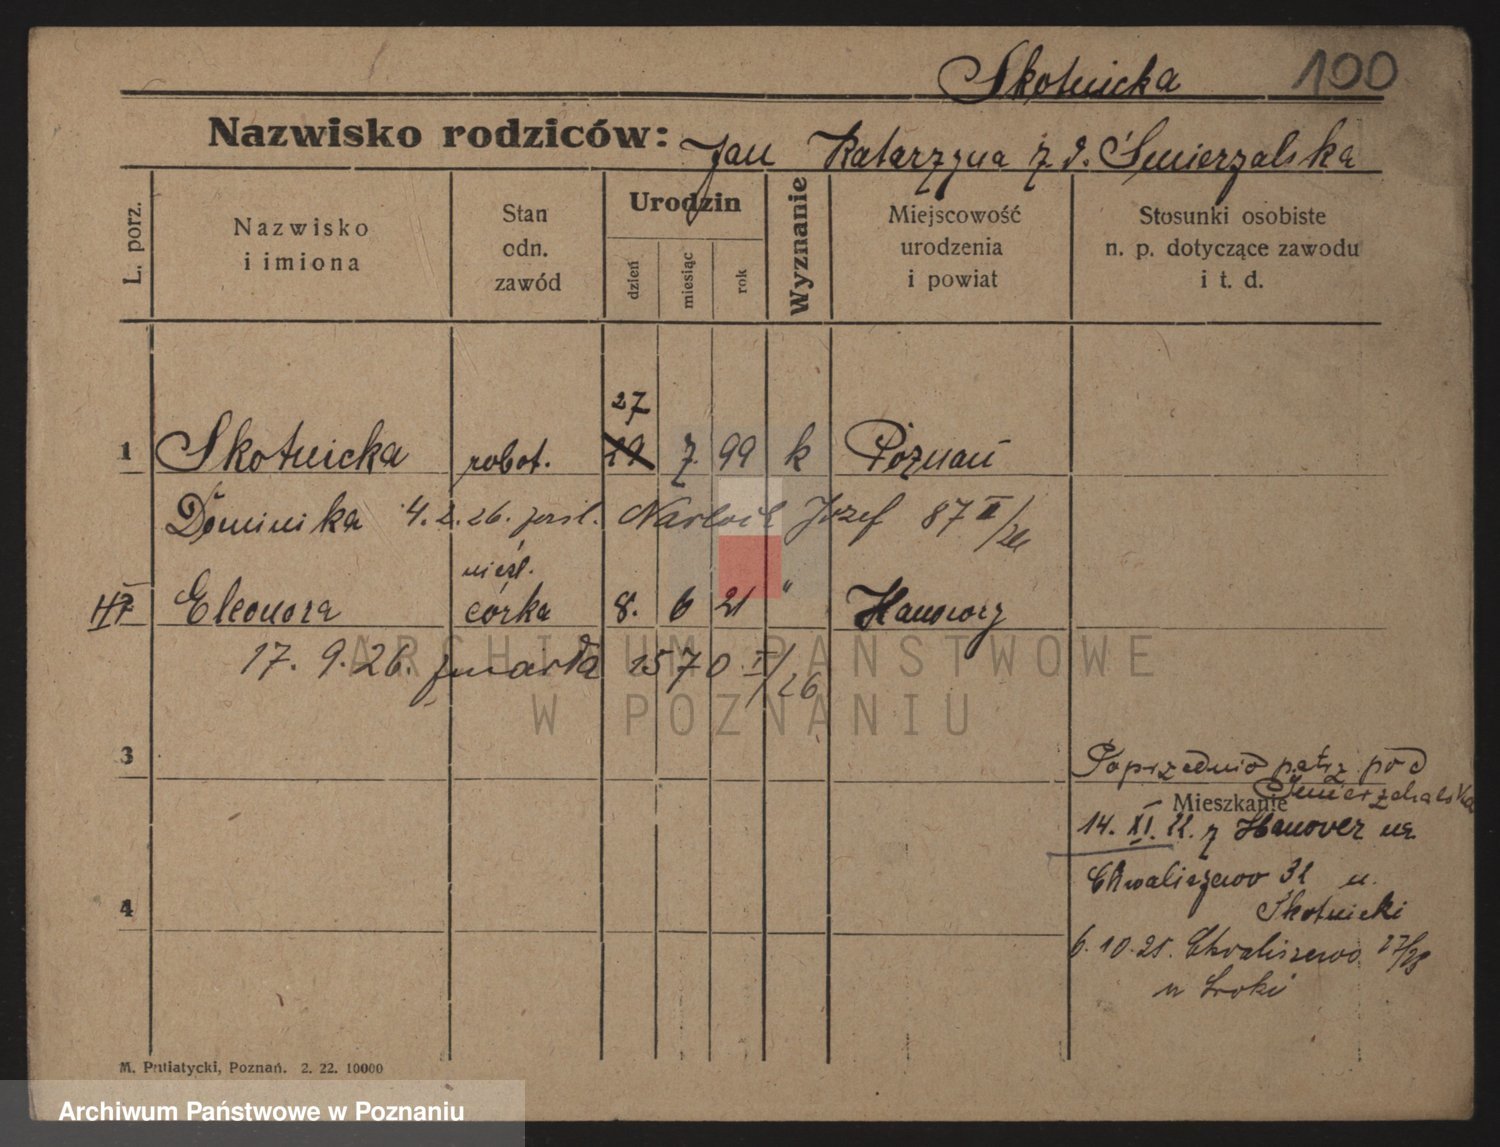 Skotnicka 100
Nazwisko rodziców: Jan Katarzyna z d. Śmierzalska
L. porz.
Nazwisko
i imiona
Stan
odn.
zawód
Urodzin
dzień
miesiąc
rok
Wyznanie
Miejscowość
urodzenia
i powiat
Stosunki osobiste
n. p. dotyczące zawodu
i t. d.
27
1 Skotnicka robot. 19 7. 99 k Poznań
Dominika 4. 2. 26. Józef 87 II/26
nieśl.
Eleonora córka 8. 6 21 " Hanowrz
17. 9. 26. zmarła 1570 I/26
3
Poprzednio patrz pod
Śmierzchalska
Mieszkanie
14. XI. 22. z Hanover na
Chwaliszewo 31 u.
Skotnicki
4
6. 10. 25. Chwaliszewo 27/28
u Sroki
M. Putiatycki, Poznań. 2. 22. 10000
ARCHIWUM PAŃSTWOWE
W POZNANIU
Archiwum Państwowe w Poznaniu